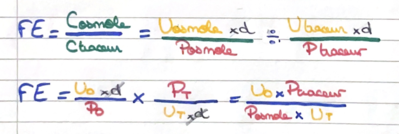 FE = Cosmole / Ctraceur = Uosmole × d / Posmole ÷ Utraceur × d / Ptraceur
FE = Uo × d / Po × PT / UT × d = Uo × Ptraceur / Posmole × UT